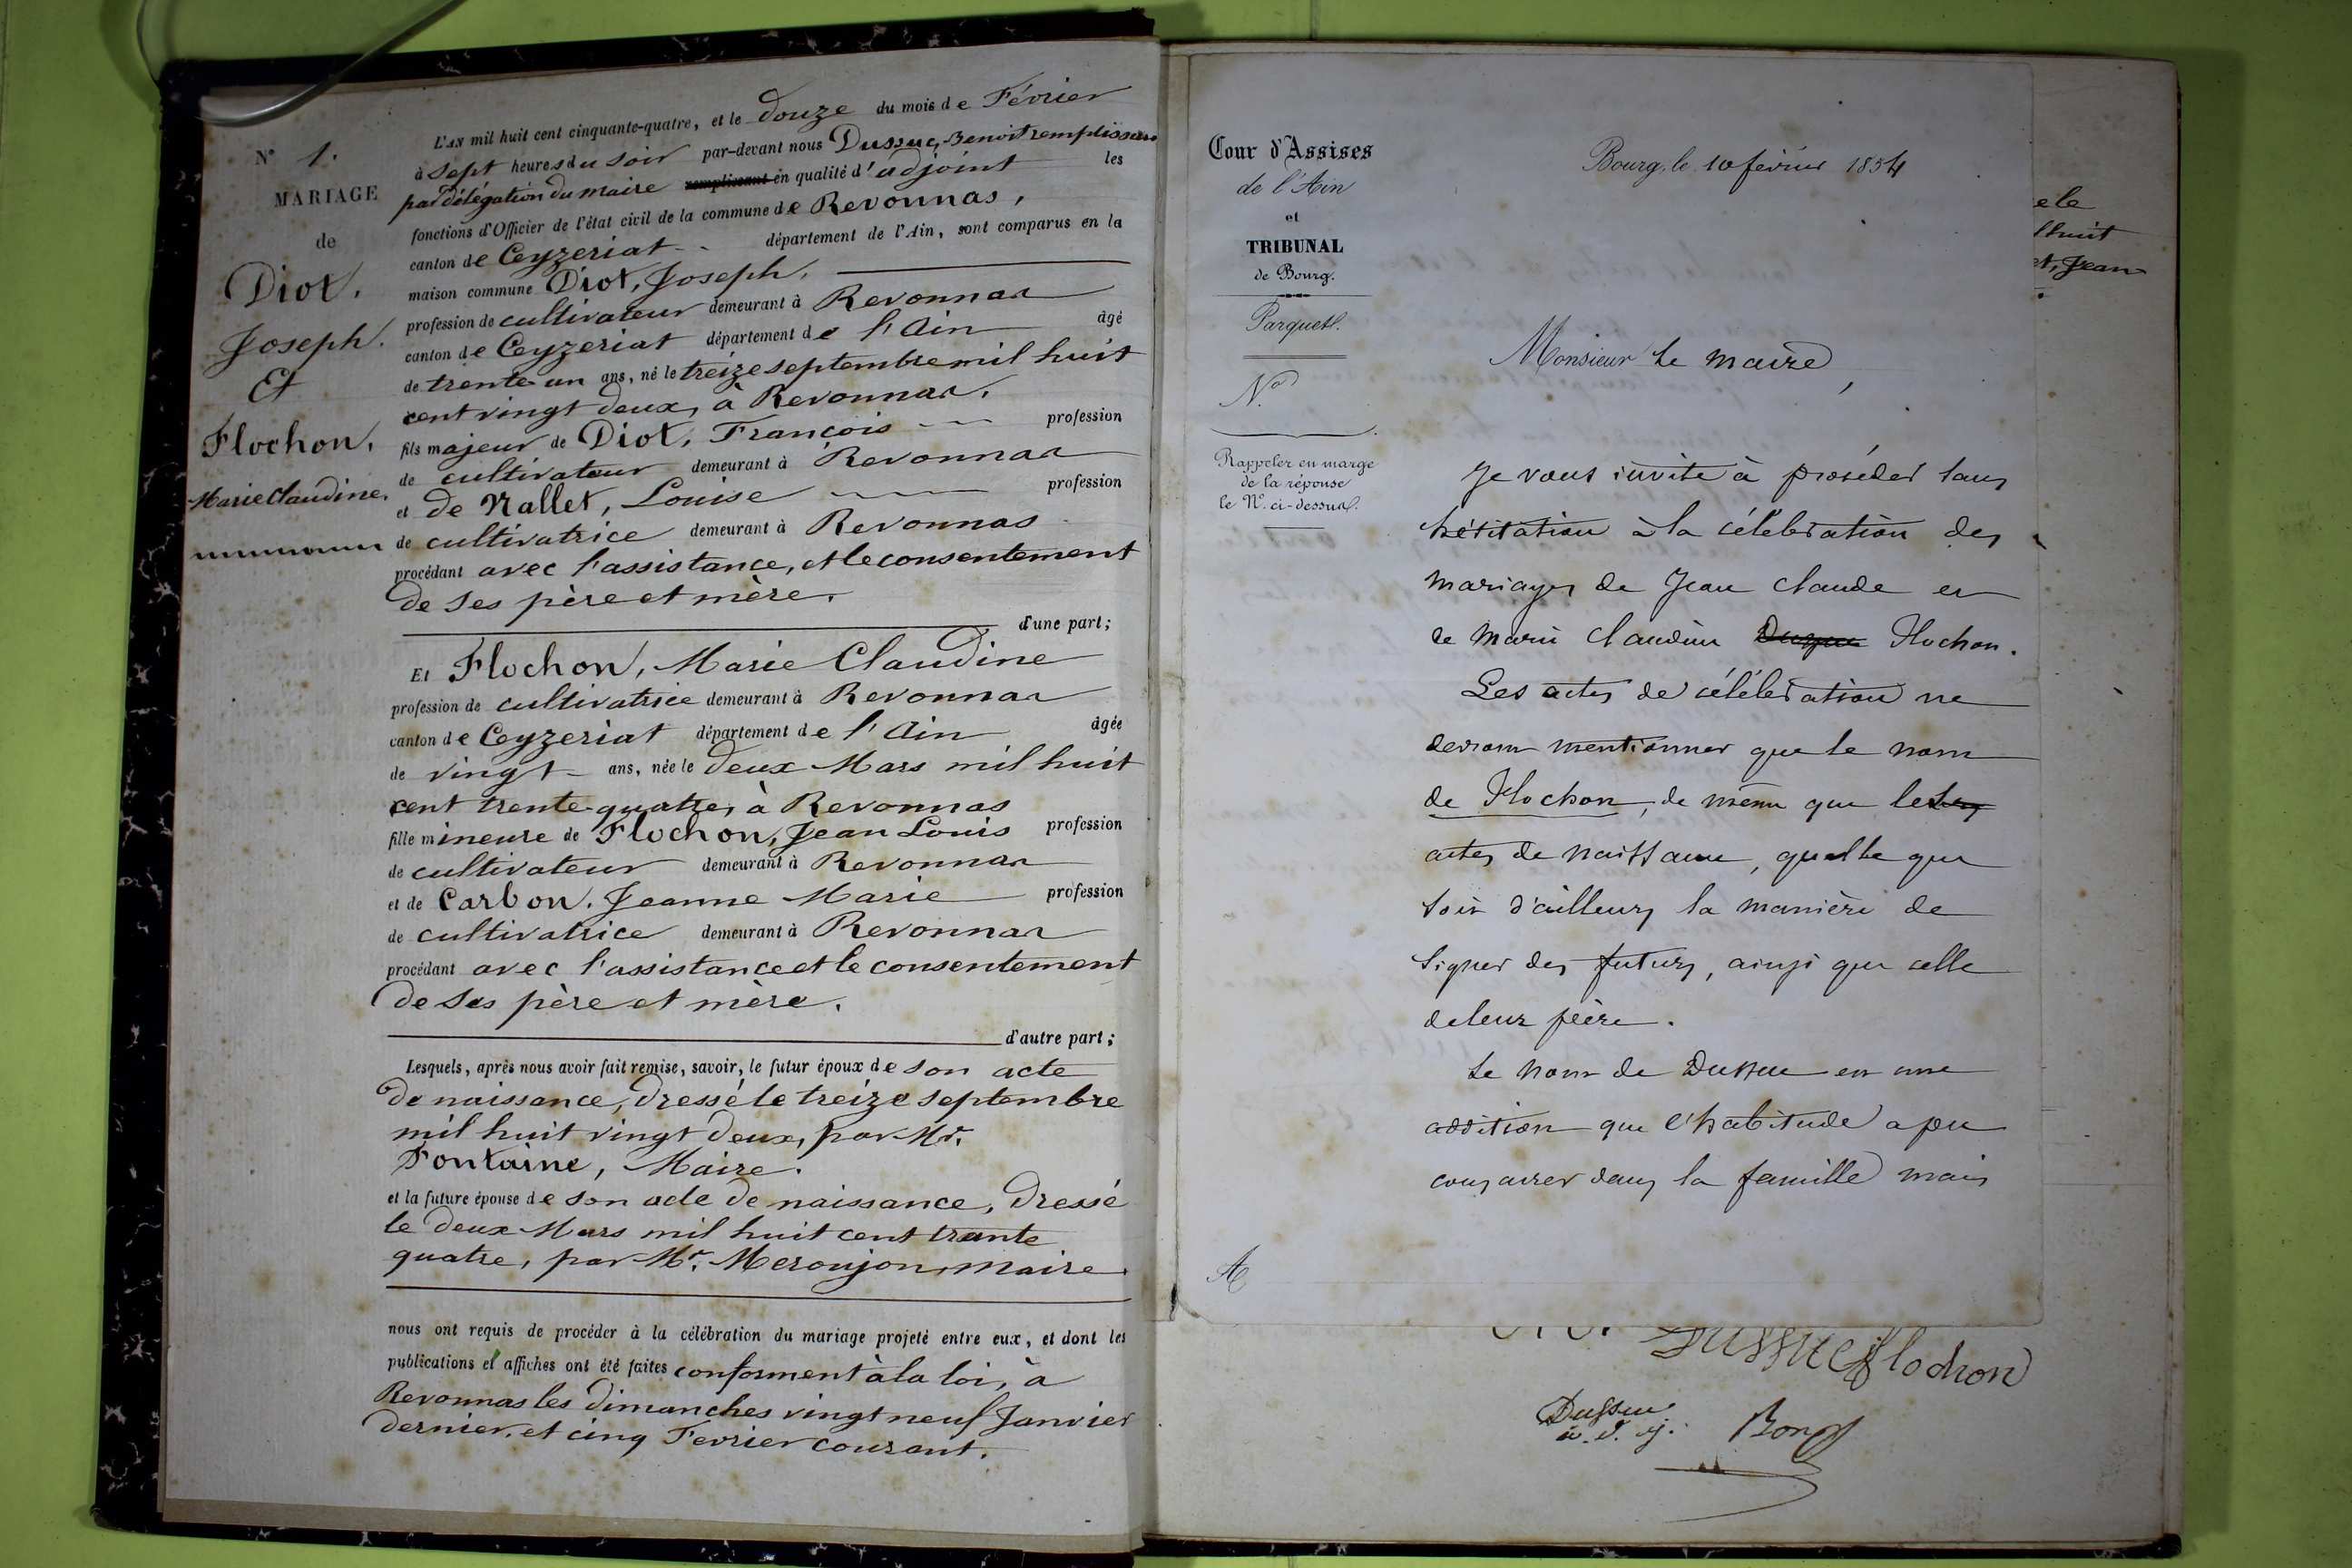 N° 1.
MARIAGE
de
Diot,
Joseph.
Et
Flochon,
Marie Claudine.
L'AN mil huit cent cinquante-quatre, et le douze du mois de Février
à sept heures du soir par-devant nous Dussuc, Benoit remplissant
par délégation du maire remplissant en qualité d'adjoint les
fonctions d'Officier de l'état civil de la commune de Revonnas,
canton de Ceyzeriat département de l'Ain, sont comparus en la
maison commune Diot, Joseph.
profession de cultivateur demeurant à Revonnas
canton de Ceyzeriat département de l'Ain âgé
de trente-un ans, né le treize septembre mil huit
cent vingt deux, à Revonnas.
fils majeur de Diot, François profession
de cultivateur demeurant à Revonnas
et de Nallet, Louise profession
de cultivatrice demeurant à Revonnas
procédant avec l'assistance, et le consentement
de ses père et mère.
d'une part;
Et Flochon, Marie Claudine
profession de cultivatrice demeurant à Revonnas
canton de Ceyzeriat département de l'Ain âgée
de vingt ans, née le deux Mars mil huit
cent trente-quatre, à Revonnas
fille mineure de Flochon, Jean Louis profession
de cultivateur demeurant à Revonnas
et de Carbon, Jeanne Marie profession
de cultivatrice demeurant à Revonnas
procédant avec l'assistance et le consentement
de ses père et mère.
d'autre part;
Lesquels, après nous avoir fait remise, savoir, le futur époux de son acte
de naissance, dressé le treize septembre
mil huit vingt deux, par Mr.
Fontaine, Maire.
et la future épouse de son acte de naissance, dressé
le deux Mars mil huit cent trente
quatre, par Mr. Meronjon, maire.
nous ont requis de procéder à la célébration du mariage projeté entre eux, et dont les
publications et affiches ont été faites conforment à la loi, à
Revonnas les dimanches vingt neuf Janvier
dernier, et cinq Fevrier courant.
Cour d'Assises
de l'Ain
et
TRIBUNAL
de Bourg.
Parquet.
N°
Rappeler en marge
de la réponse
le N° ci-dessus.
Bourg, le 10 février 1854
Monsieur le maire,
Je vous invite à procéder sans
hésitation à la célébration des
mariages de Jean Claude et
de Marie Claudine Dussuc Flochon.
Les actes de célébration ne
devront mentionner que le nom
de Flochon, de même que les
actes de naissance, quelle que
soit d'ailleurs la manière de
signer des futurs, ainsi que celle
de leur père.
Le nom de Dussuc est une
addition que l'habitude a pu
consacrer dans la famille mais
ele
huit
et, Jean
Dussuc flochon
Dussuc
Bon